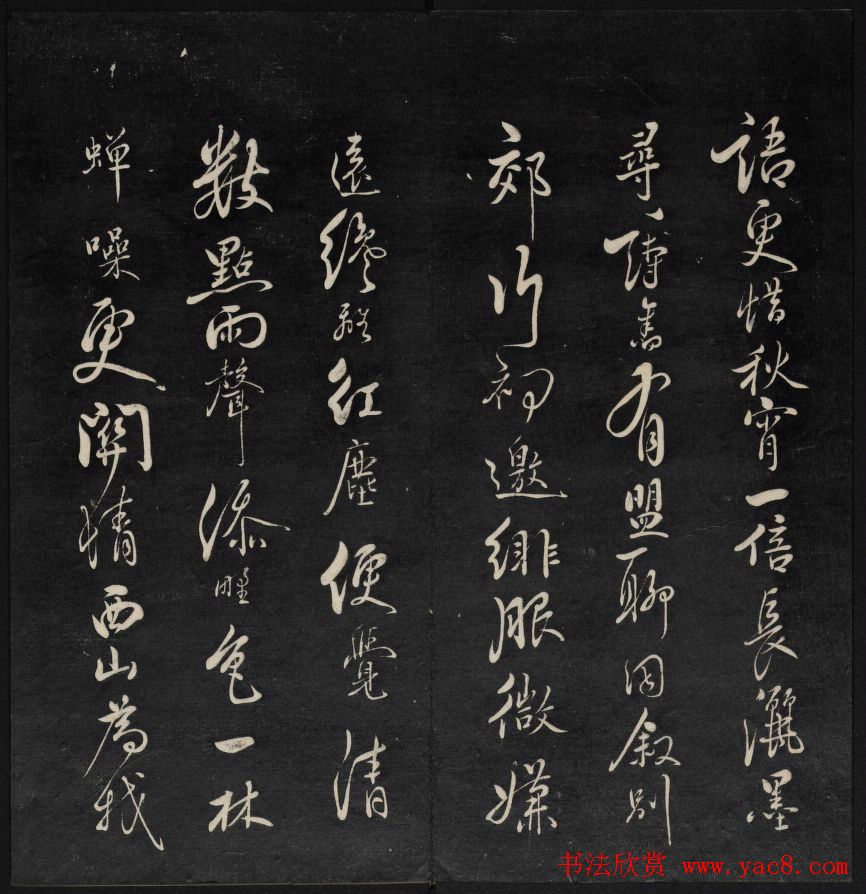 語更惜秋宵一倍長灑墨
尋詩舊有盟聊因叙別
郊行初邀緋服微嫌
遠纔離紅塵便覺清
數點雨聲添野色一林
蟬噪更關情西山為我
书法欣赏 www.yac8.com